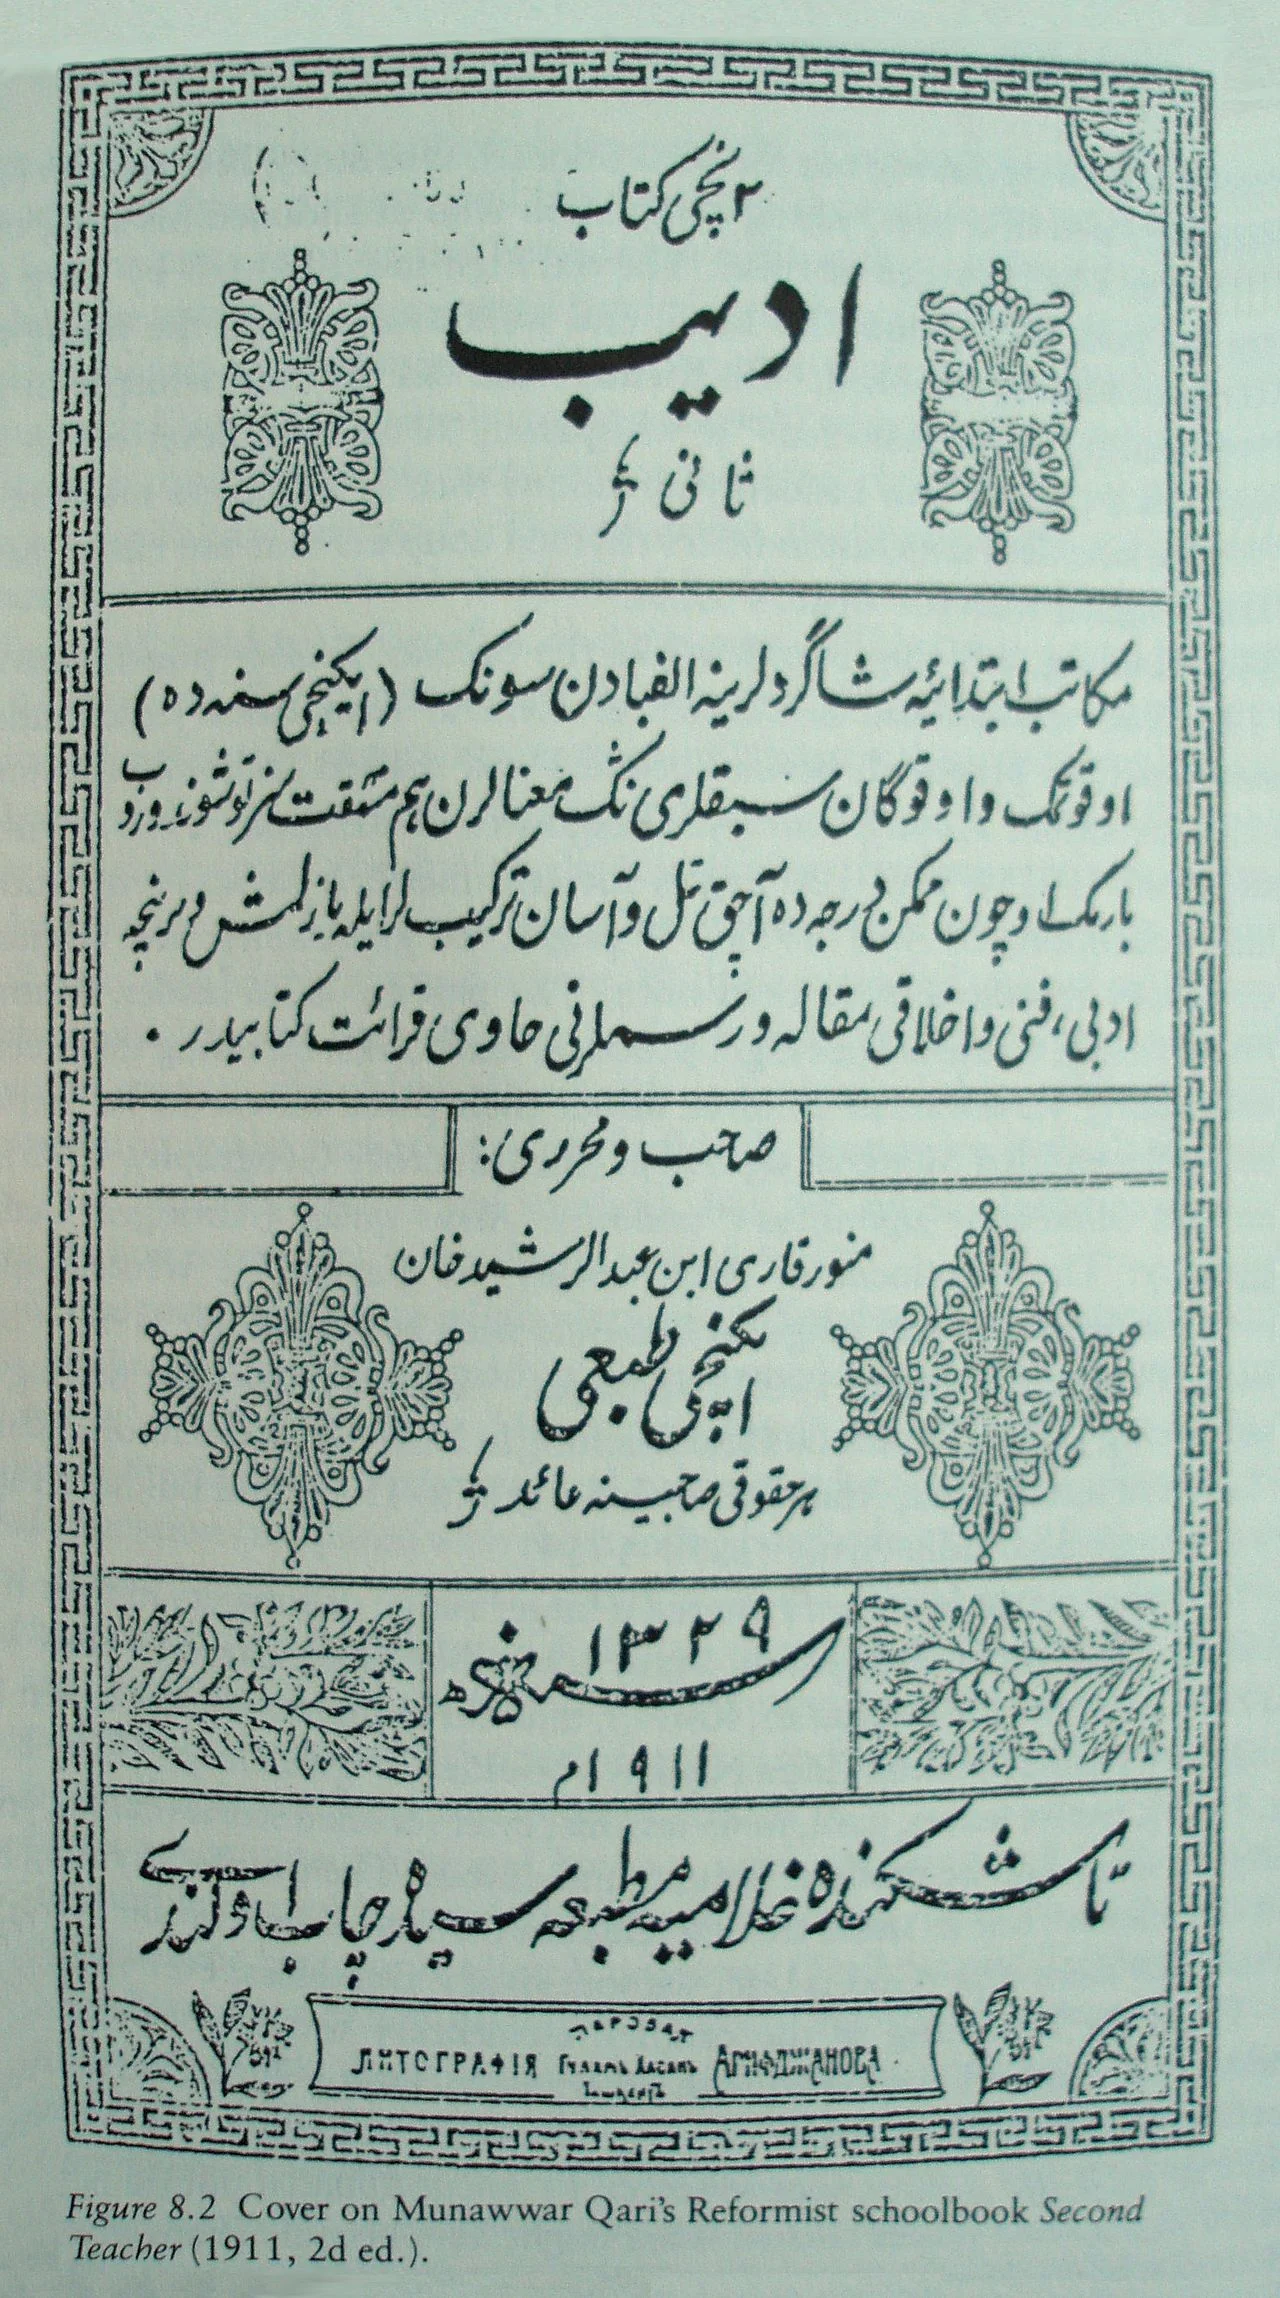 ۲ نچی کتاب
ادیب
ثانی
مکاتب ابتدائیه شاگردلرینه الفبادن سونک (ایکنچی سنه ده)
اوقوتمک و اوقوگان سبقلری نڭ معنالرن هم مشقت سز توشوندورب
بارمک اوچون ممکن درجه ده آچق تل و آسان ترکیب لر ایله یازلمش و برنچه
ادبی، فنی و اخلاقی مقاله و رسملرنی حاوی قرائت کتابیدر .
صاحب و محرری:
منور قاری ابن عبدالرشید خان
ایکنچی طبعی
هر حقوقی صاحبینه عائد
سنه ۱۳۲۹ هجریه
۱۹۱۱ م
تاشکنده غلامیه مطبعه سیده چاپ اولندی
ЛИТОГРАФІЯ Гулямъ Хасанъ АРИФДЖАНОВА
Figure 8.2 Cover on Munawwar Qari's Reformist schoolbook Second
Teacher (1911, 2d ed.).